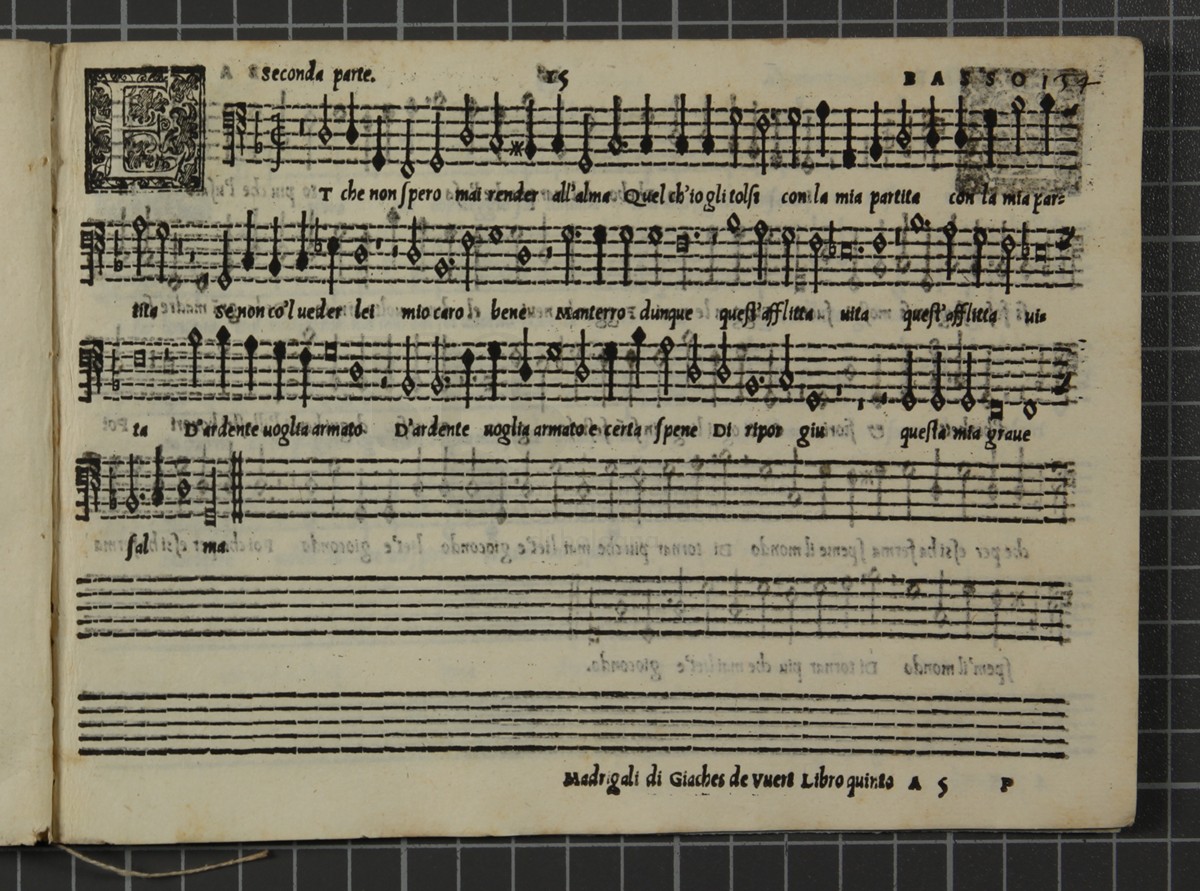 Seconda parte. 15 BASSO 134
ET che non spero mai render all'alma Quel ch'io gli tolsi con la mia partita con la mia par=
tita se non co'l ueder lei mio caro bene Manterro dunque quest'afflitta uita quest'afflitta ui=
ta D'ardente uoglia armato D'ardente uoglia armato e certa spene Di ripor giu questa mia graue
sal ma.
Madrigali di Giaches de Vuert Libro quinto A 5 P